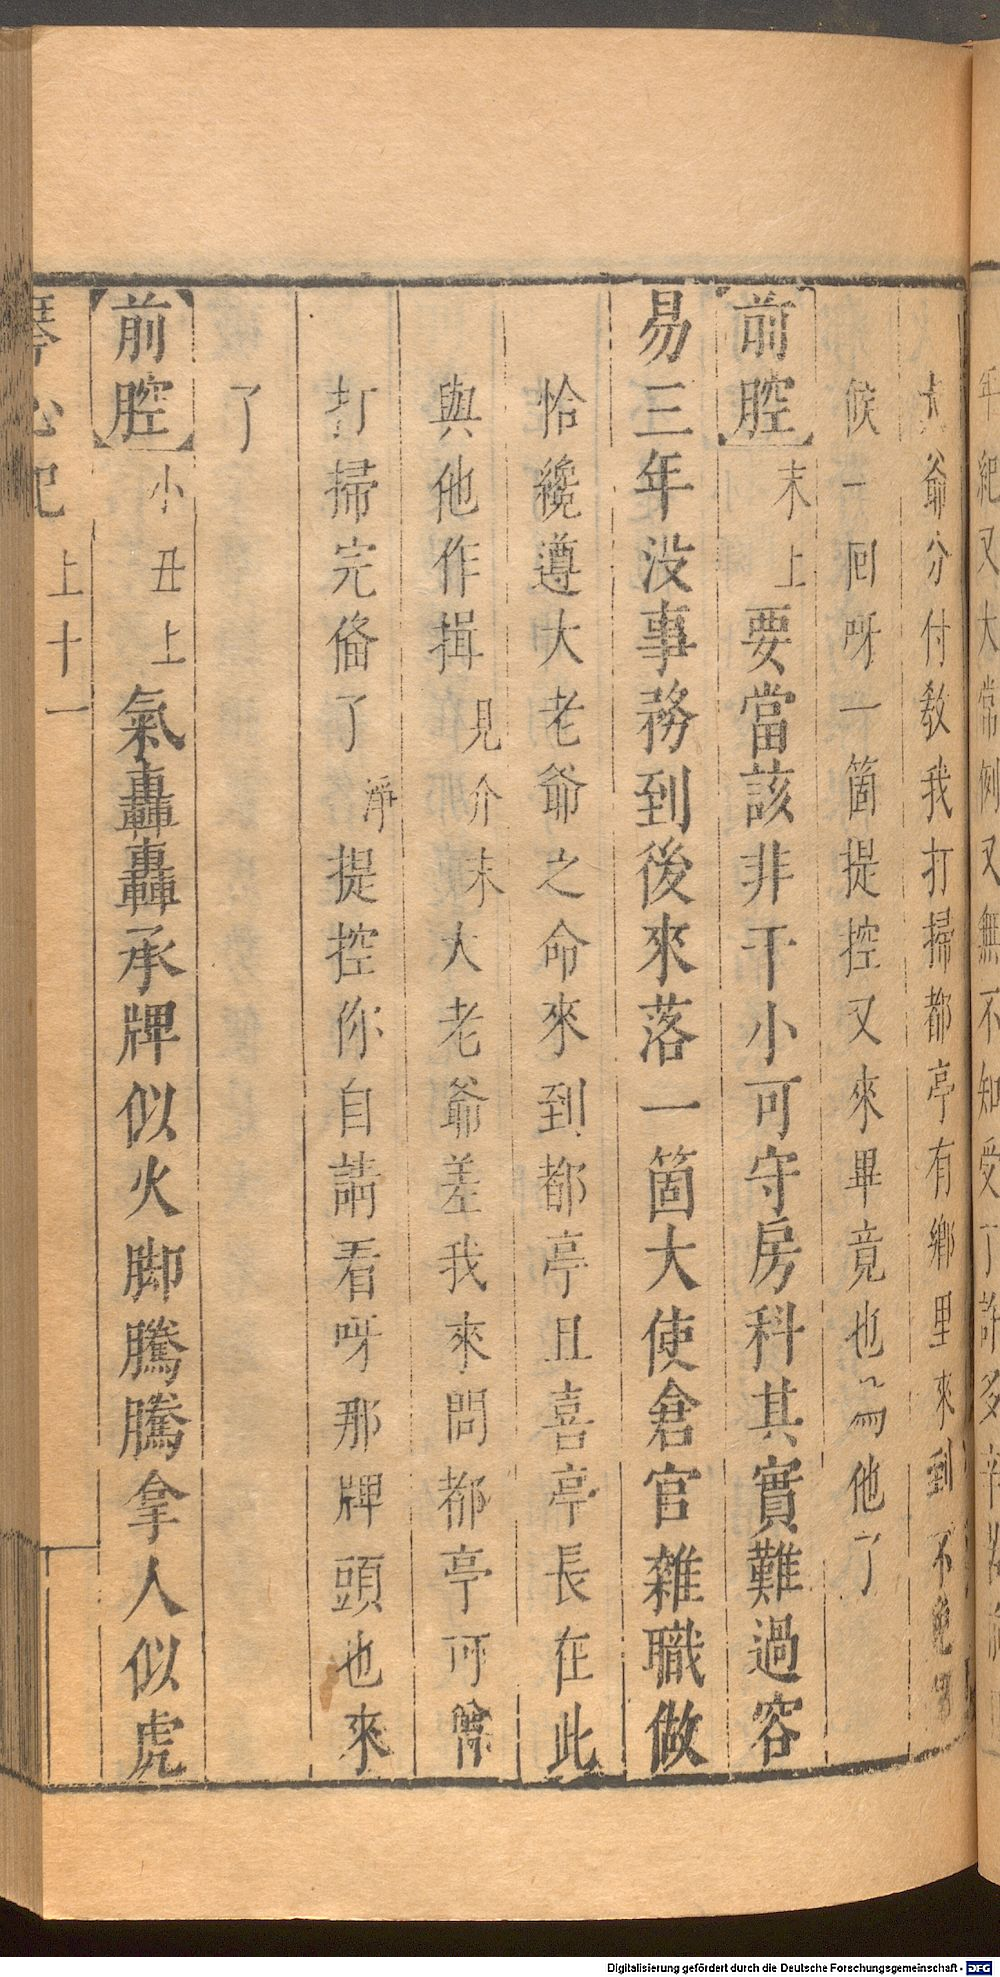 年紀又大常例又無不知受了許多
大爺分付教我打掃都亭有鄉里來到不免
候一回呀一箇提控又來畢竟也為他了
【前腔】末上要當該非干小可守房科其實難過容
易三年没事務到後來落一箇大使倉官雜職做
恰纔遵大老爺之命來到都亭且喜亭長在此
與他作揖見介末大老爺差我來問都亭可曾
打掃完俻了淨提控你自請看呀那牌頭也來
了
【前腔】小丑上氣轟轟承牌似火脚騰騰拿人似虎
琴心記 上 十一
Digitalisierung gefördert durch die Deutsche Forschungsgemeinschaft - DFG